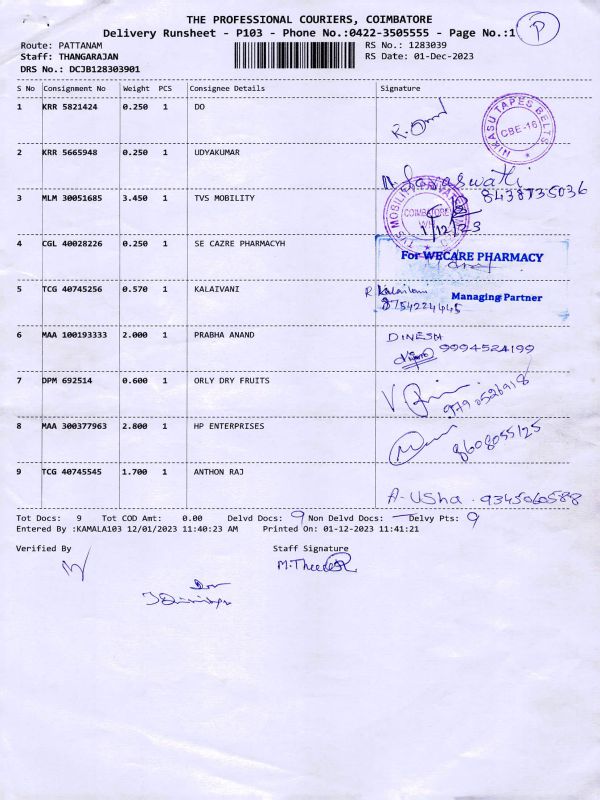 THE PROFESSIONAL COURIERS, COIMBATORE
Delivery Runsheet - P103 - Phone No.:0422-3505555 - Page No.:1 P
Route: PATTANAM RS No.: 1283039
Staff: THANGARAJAN RS Date: 01-Dec-2023
DRS No.: DCJB128303901
S No Consignment No Weight PCS Consignee Details Signature
1 KRR 5821424 0.250 1 DO
NIKASU TAPES BELTS
CBE-16
2 KRR 5665948 0.250 1 UDYAKUMAR
8438735036
3 MLM 30051685 3.450 1 TVS MOBILITY
TVS MOBILITY PRIVATE
COIMBATORE
1/12/23
4 CGL 40028226 0.250 1 SE CAZRE PHARMACYH
For WECARE PHARMACY
5 TCG 40745256 0.570 1 KALAIVANI R Kalaivani
Managing Partner
8754224445
6 MAA 100193333 2.000 1 PRABHA ANAND DINESH
9994524199
7 DPM 692514 0.600 1 ORLY DRY FRUITS
8 MAA 300377963 2.800 1 HP ENTERPRISES
8608055125
9 TCG 40745545 1.700 1 ANTHON RAJ
A-Usha. 9345060588
Tot Docs: 9 Tot COD Amt: 0.00 Delvd Docs: 9 Non Delvd Docs: — Delvy Pts: 9
Entered By :KAMALA103 12/01/2023 11:40:23 AM Printed On: 01-12-2023 11:41:21
Verified By Staff Signature